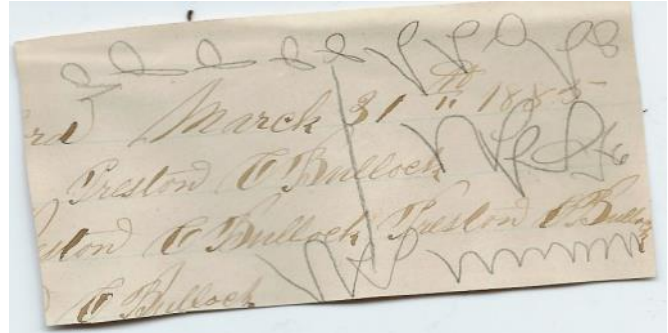 rd March 31st 1885
Preston C Bullock
ston C Bullock Preston C Bullo
C Bullock